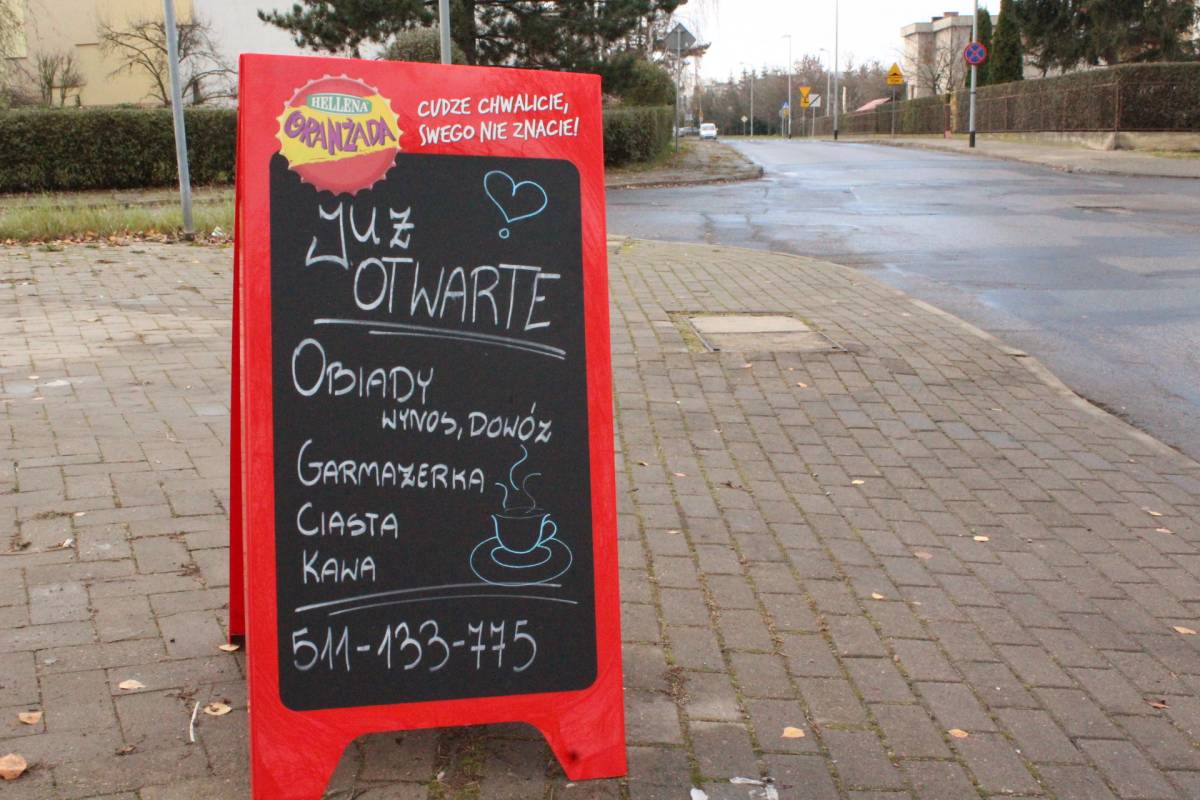 HELLENA
ORANŻADA
CUDZE CHWALICIE,
SWEGO NIE ZNACIE!
JUŻ
OTWARTE
OBIADY
WYNOS, DOWÓZ
GARMAŻERKA
CIASTA
KAWA
511-133-775